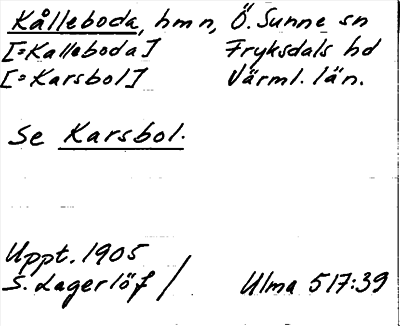 Kålleboda, hmn, Ö. Sunne sn
[=Kalleboda] Fryksdals hd
[=Karsbol] Värml. län.
Se Karsbol.
Uppt. 1905
S. Lagerlöf / Ulma 517:39